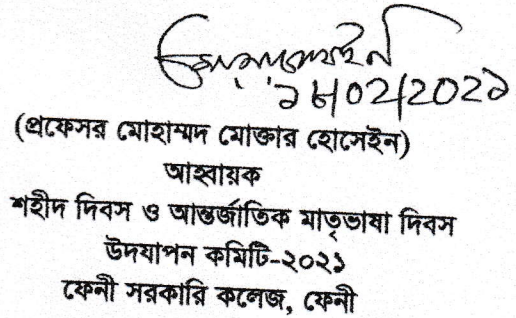 ১৮/০২/২০২১
(প্রফেসর মোহাম্মদ মোক্তার হোসেইন)
আহ্বায়ক
শহীদ দিবস ও আন্তর্জাতিক মাতৃভাষা দিবস
উদযাপন কমিটি-২০২১
ফেনী সরকারি কলেজ, ফেনী